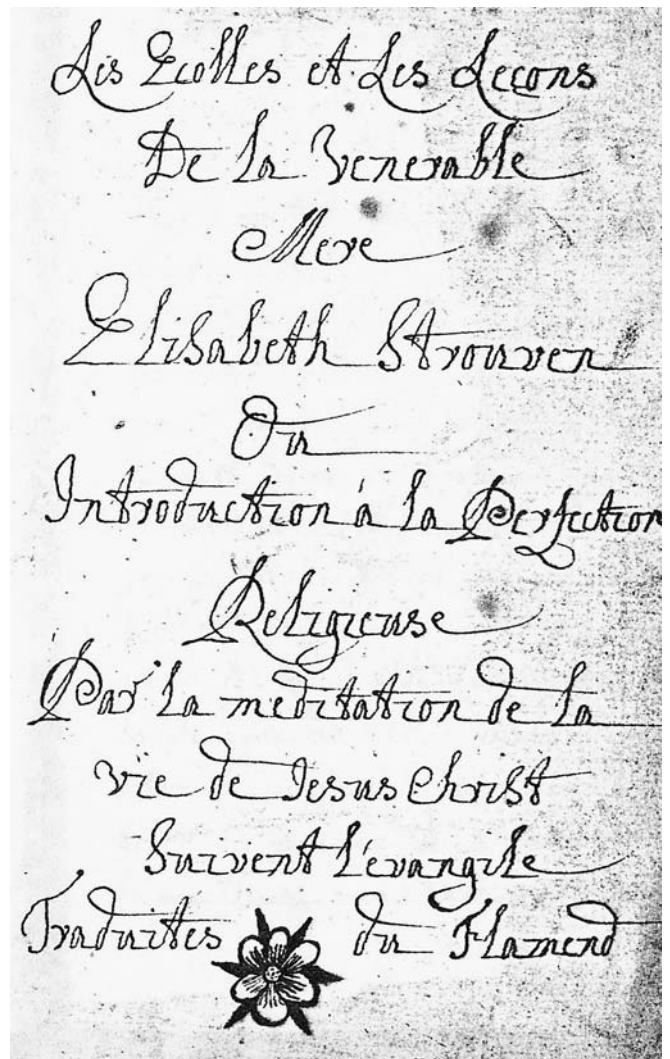 Les Ecolles et Les Leçons
De la Venerable
Mere
Elisabeth Strouven
Ou
Introduction à la Perfection
Religieuse
Par la meditation de la
vie de Jesus Christ
Suivent L'evangile
Traduites du Flamend